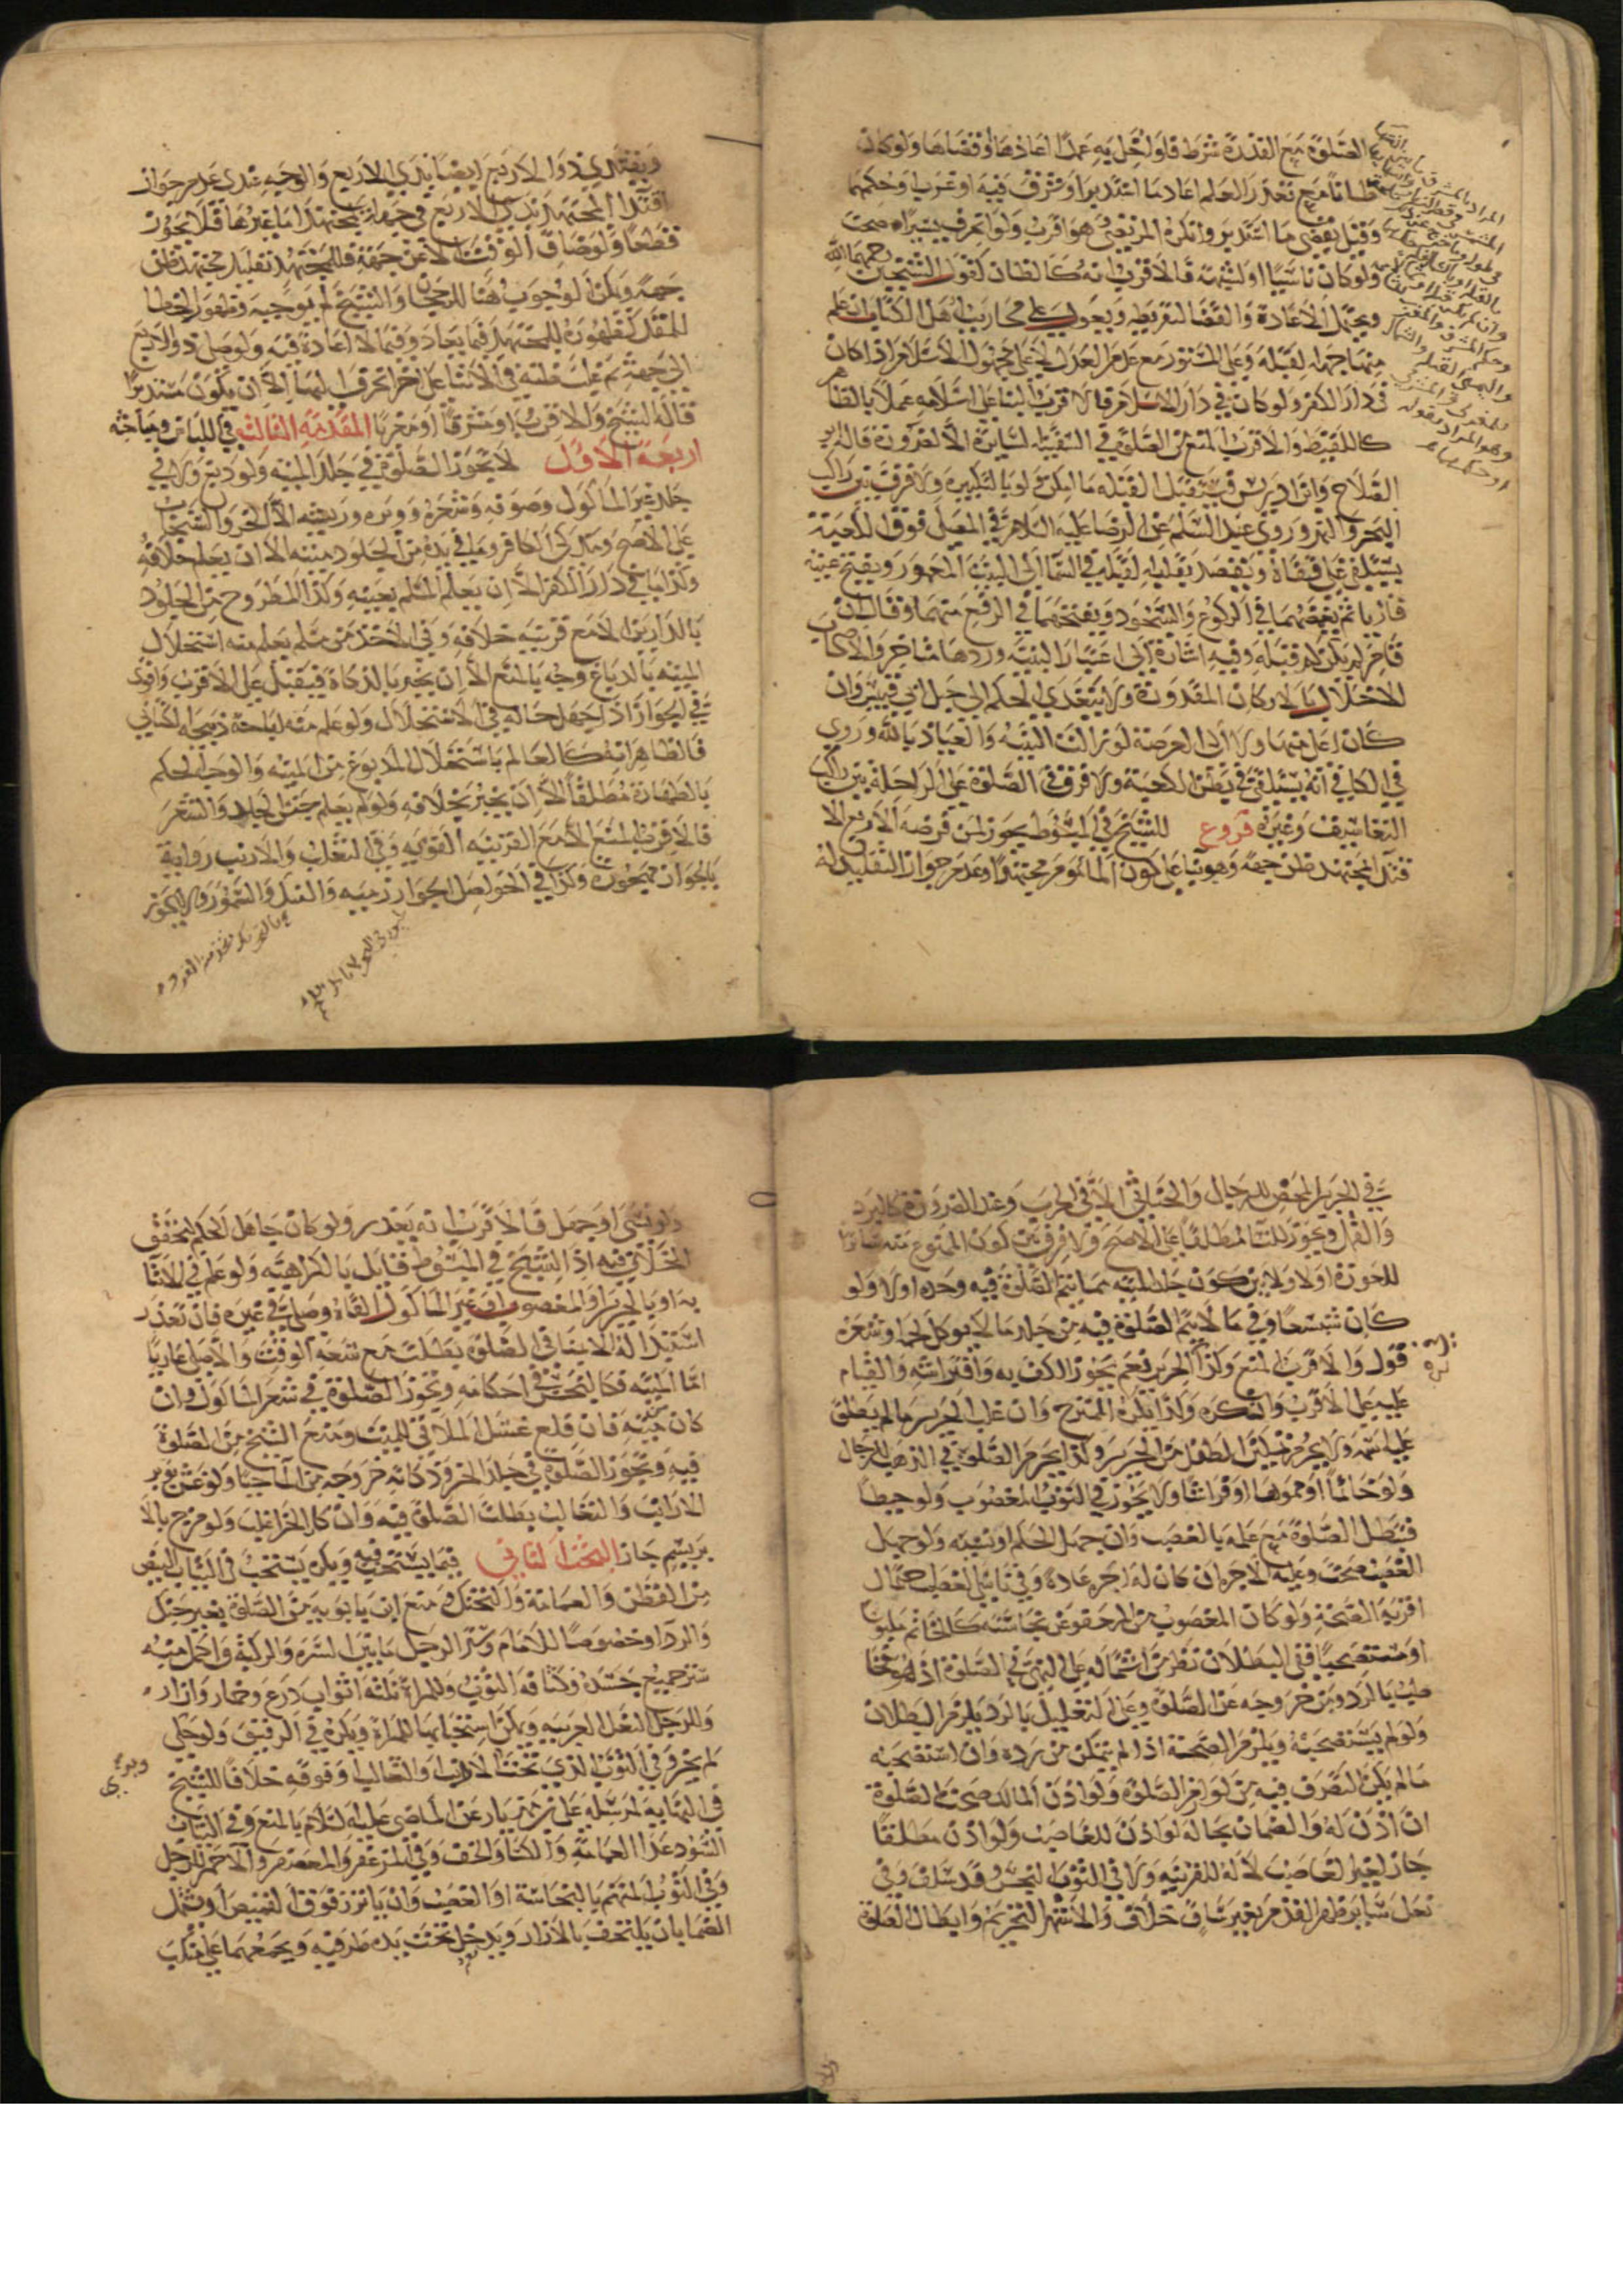 الصلوة مع القدرة شرط فلو اخل به عمدا اعادها او قضاها ولو كان
ظانا مع تعذر العلم اعاد ما استدبر او شرق فيه او غرب او حكمهما
وقيل يقضى ما استدبر وانكره المرتضى وهو اقرب ولو انحرف يسيرا صحت
ولو كان ناسيا او لشبهة فالاقرب انه كالظان لقول الشيخين رحمهما الله
ويحتمل الاعادة والقضا لتفريطه ويعول على محاريب اهل الكتاب ان علم
منها جهة لقبلة وعلى المستور مع عدم العدل لا على مجهول الاسلام اذا كان
فى دار الكفر ولو كان فى دار الاسلام فالاقرب البنا على اسلامه عملا بالظاهر
كاللقيط والاقرب المنع من الصلوة فى السفينة السايرة الا لضرورة قاله ابو
الصلاح وابن ادريس فيستقبل القبلة ما امكن ولو بالتكبيرة ولا فرق بين راكب
البحر والنهر وروى عبد السلم عن الرضا عليه السلام فى المصلى فوق الكعبة
يستلقى على قفاه ويقصد بقلبه لقبلة فى السما الى البيت المعمور ويفتح عينيه
قاريا ثم يغمضهما فى الركوع والسجود ويفتحهما فى الرفع منهما وقال ان
قام لم يكن له قبلة وفيه اشارة الى اعتبار البنية وردها متاخروا الاصحاب
لاخلال بالاركان المقدورة ولا يتعدى الحكم الى جبل ابى قبيس وان
كان اعلى منها ولا الى العرصة لو زالت البنية والعياذ بالله وروى
فى الكافى انه يستلقى فى بطن الكعبة ولا فرق فى الصلوة على الراحلة بين راكب
التعاسيف وغيره فروع للشيخ فى المبسوط يجوز لمن فرضه الاربع الا
قتدا بمجتهد ظن جهة وهو بنا على كون الماموم مجتهدا وعدم جواز التقليد له
ويقتدى ذوا الاربع ايضا بذى الاربع والوجه عندى عدم جواز
اقتدا المجتهد بذى الاربع فى جهة مجتهدا اما غيرها فلا يجوز
قطعا ولو ضاق الوقت الا عن جهة فللمجتهد تقليد مجتهد ظن
جهة ويمكن الوجوب هنا للرجحان والشيخ لم يوجبه وظهور الخطا
للمقلد كظهوره للمجتهد فيما يعاد وفيما لا اعادة فيه ولو صلى ذو الاربع
الى جهة ثم غلب ظنه فى الاثنا على اخرى انحرف اليها الا ان يكون مستدبرا
قاله الشيخ والاقرب او مشرقا او مغربا المقدمة الثالث فى اللباس ومباحثه
اربعة الاول لا يجوز الصلوة فى جلد الميتة ولو دبغ ولا فى
جلد غير الماكول وصوفه وشعره ووبره وريشه الا الخز والسنجاب
على الاصح وما لم يذكى الكافر وما فى يده من الجلود ميتة الا ان يعلم خلافه
وكذا ما فى دار الكفر الا ان يعلم المسلم بعينه وكذا المطروح من الجلود
بالدارين الا مع قرينة خلافه وفى الاخذ من مسلم يعلم منه استحلال
الميتة بالدباغ وجه بالمنع الا ان يخبر بالذكاة فيقبل على الاقرب واقوى
فى الجواز اذا جهل حاله فى الاستحلال ولو علم منه اباحة ذبيحة الكتابى
فالظاهر انه كالعالم باستحلال المدبوغ من الميتة والوجه الحكم
بالطهارة مطلقا الا ان يخبر بخلافه ولو لم يعلم جنس الجلد والشعر
فالاقرب المنع الا مع القرينة القوية وفى الثعلب والارنب رواية
بالجواز مهجورة وكذا فى الحواصل الخوارزمية والفنك والسمور ولا يجوز
فى الحرير المحض للرجال والخناثى الا فى الحرب وعند الضرورة كالبرد
والقمل ويجوز للنسا مطلقا على الاصح ولا فرق بين كون الممنوع منه ساترا
للعورة اولا ولا بين كون جلد الميتة مما يتم الصلوة فيه وحده او لا ولو
كان شسعا وفى ما لا يتم الصلوة فيه من جلد ما لا يوكل لحمه او شعره
قول والاقرب المنع وكذا الحرير نعم يجوز الكف به وافتراشه والقيام
عليه على الاقرب وان كره وكذا يكره الممتزج وان غلب الحرير ما لم يطلق
عليه اسمه ولا يحرم تمكين الطفل من الحرير وكذا يحرم الصلوة فى الذهب للرجال
ولو خاتما او مموها او فراشا ولا يجوز فى الثوب المغصوب ولو خيطا
فتبطل الصلوة مع علمه بالغصب وان جهل الحكم او نسيه ولو جهل
الغصب صحت وعليه الاجرة ان كان له اجرة عادة وفى ناسى الغصب احتمال
اقربه الصحة ولو كان المغصوب من المعفو عن نجاسته كالخاتم ملبوسا
او مستصحبا ففى البطلان نظر من اشتماله على النهى فى الصلوة اذ هو مخا
طب بالرد ومن خروجه عن الصلوة وعلى التعليل بالرد يلزم البطلان
ولو لم يستصحبه ويلزم الصحة اذا لم يتمكن من رده وان استصحبه
ما لم يكن التصرف فيه من لوازم الصلوة ولو اذن المالك صحت الصلوة
ان اذن له والضمان بحاله لو اذن للغاصب ولو اذن مطلقا
جاز لغير الغاصب لا له للقرينة ولا فى الثوب النجس وقد سلف وفى
نعل ساتر ظهر القدم بغير ساق خلاف والاشهر التحريم وابطال الصلوة
ولو نسى او جهل فالاقرب انه يعذر ولو كان جاهل الحكم لتحقق
الخلاف فيه اذ الشيخ فى المبسوط قايل بالكراهية ولو علم فى الاثنا
به او بالحرير او المغصوب او غير الماكول القاه وصلى فى غيره فان تعذر
استبداله الا بمنافى الصلوة بطلت مع سعة الوقت والا صلى عاريا
اما الميتة فكالنجس فى احكامه وتجوز الصلوة فى شعر الماكول وان
كان ميتة فان قلع غسل الملاقى للميت ومنع الشيخ من الصلوة
فيه ويجوز الصلوة فى جلد الخز وذكاته خروجه من الما حيا ولو غش بوبر
الارانب والثعالب بطلت الصلوة فيه وان كان الخز اغلب ولو مزج بالا
بريسم جاز البحث الثانى فيما يستحب فيه ويكره يستحب فى الثياب البيض
من القطن والعمامة والتحنك ومنع ابن بابويه من الصلوة بغير حنك
والرداء وخصوصا للامام وستر الرجل ما بين السرة والركبة واكمل منه
ستر جميع جسده وكثافة الثوب وللمراة ثلثة اثواب درع وخمار وازار
وللرجل النعل العربية ويمكن استحبابها للمراة ويكره فى الرقيق ولو حكى
لم يجز وفى الثوب الذى تحت الارانب والثعالب او فوقه خلافا للشيخ
فى النهاية لمرسلة على بن مهزيار عن الماضى عليه السلام بالمنع وفى الثياب
السود عدا العمامة والكسا والخف وفى المزعفر والمعصفر والاحمر للرجل
وفى الثوب المتهم بالنجاسة او الغصب وان ياتزر فوق القميص او يشتمل
الصما بان يلتحف بالازار ويدخل تحت يده طرفيه ويجمعهما على منكب